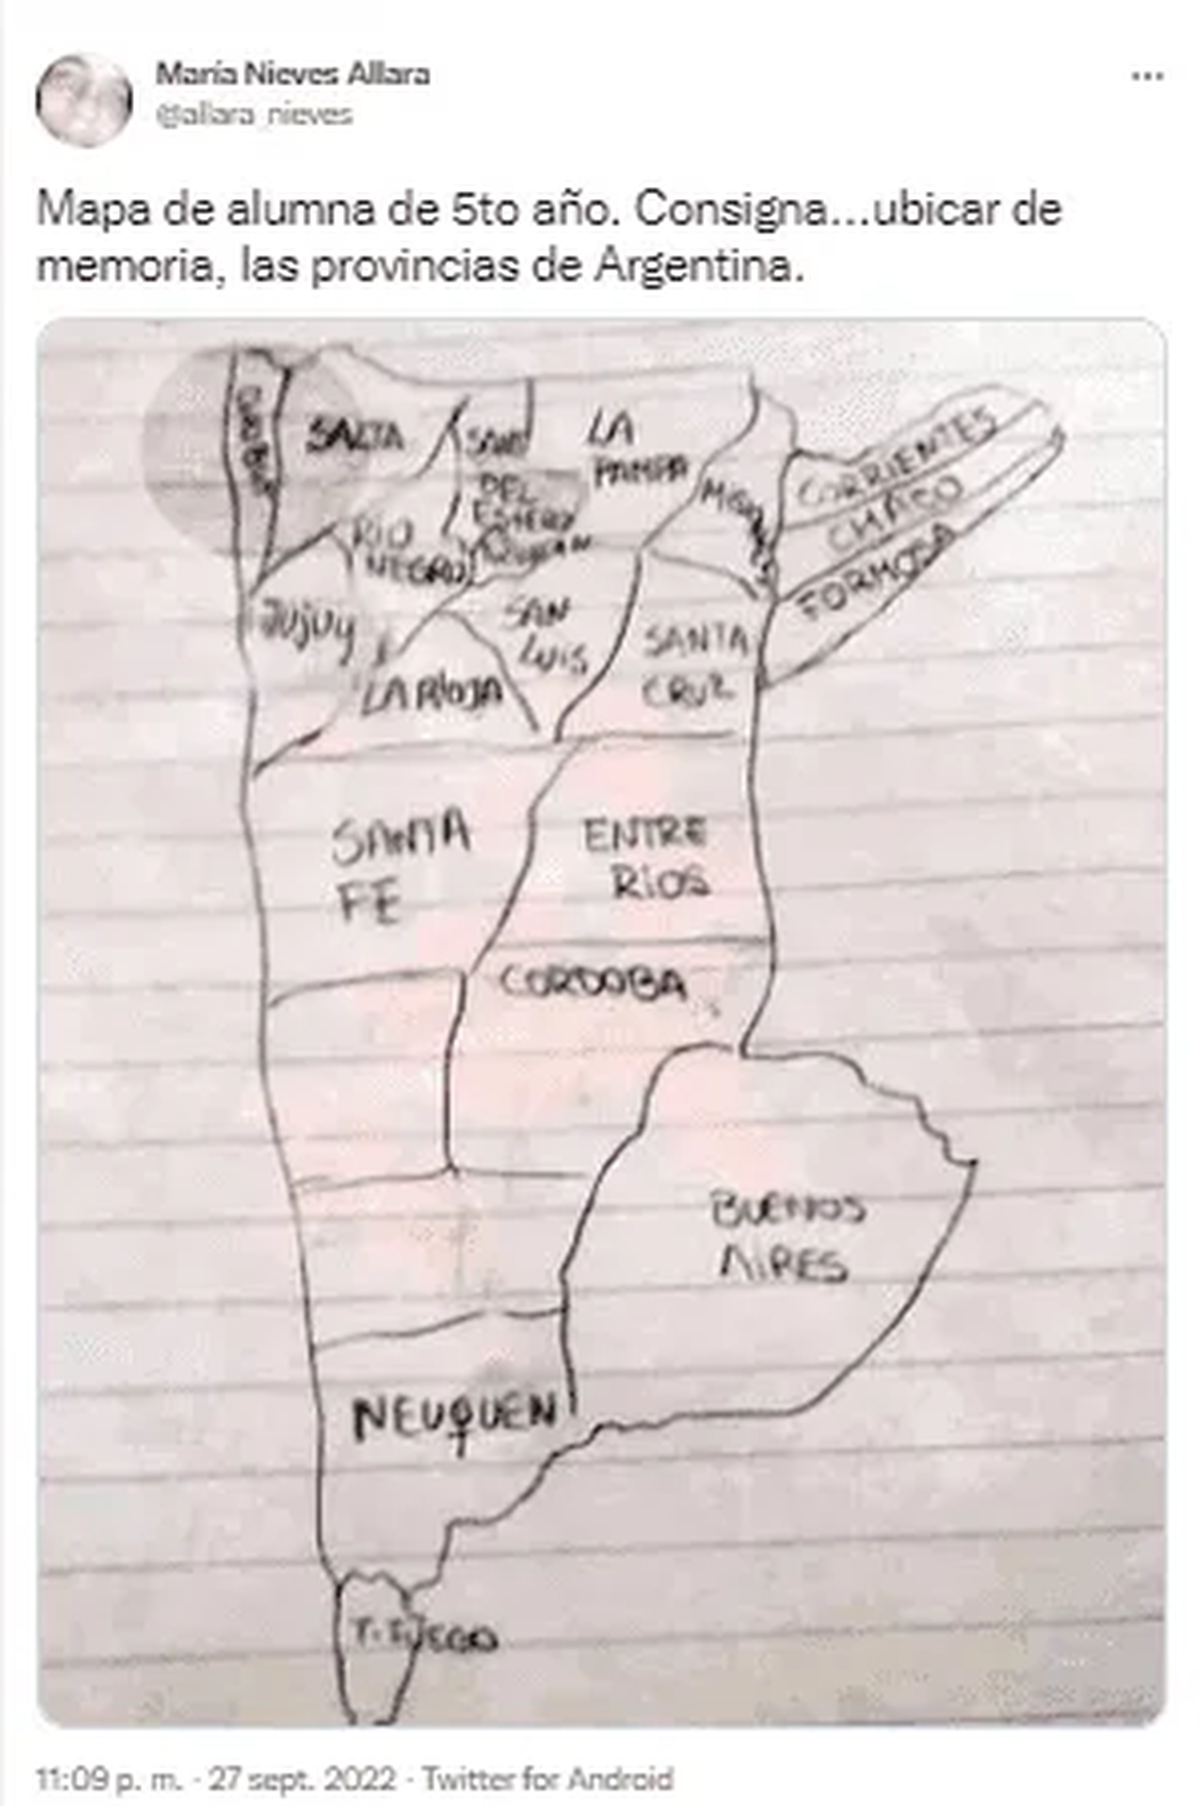 María Nieves Allara
@allara_nieves
Mapa de alumna de 5to año. Consigna...ubicar de
memoria, las provincias de Argentina.
SALTA
SANT
DEL
ESTERO
LA
PAMPA
CORRIENTES
CHACO
FORMOSA
RIO
NEGRO
JUJUY
SAN
LUIS
LA RIOJA
SANTA
CRUZ
SANTA
FE
ENTRE
RÍOS
CORDOBA
BUENOS
AIRES
NEUQUEN
T. FUEGO
11:09 p. m. · 27 sept. 2022 · Twitter for Android